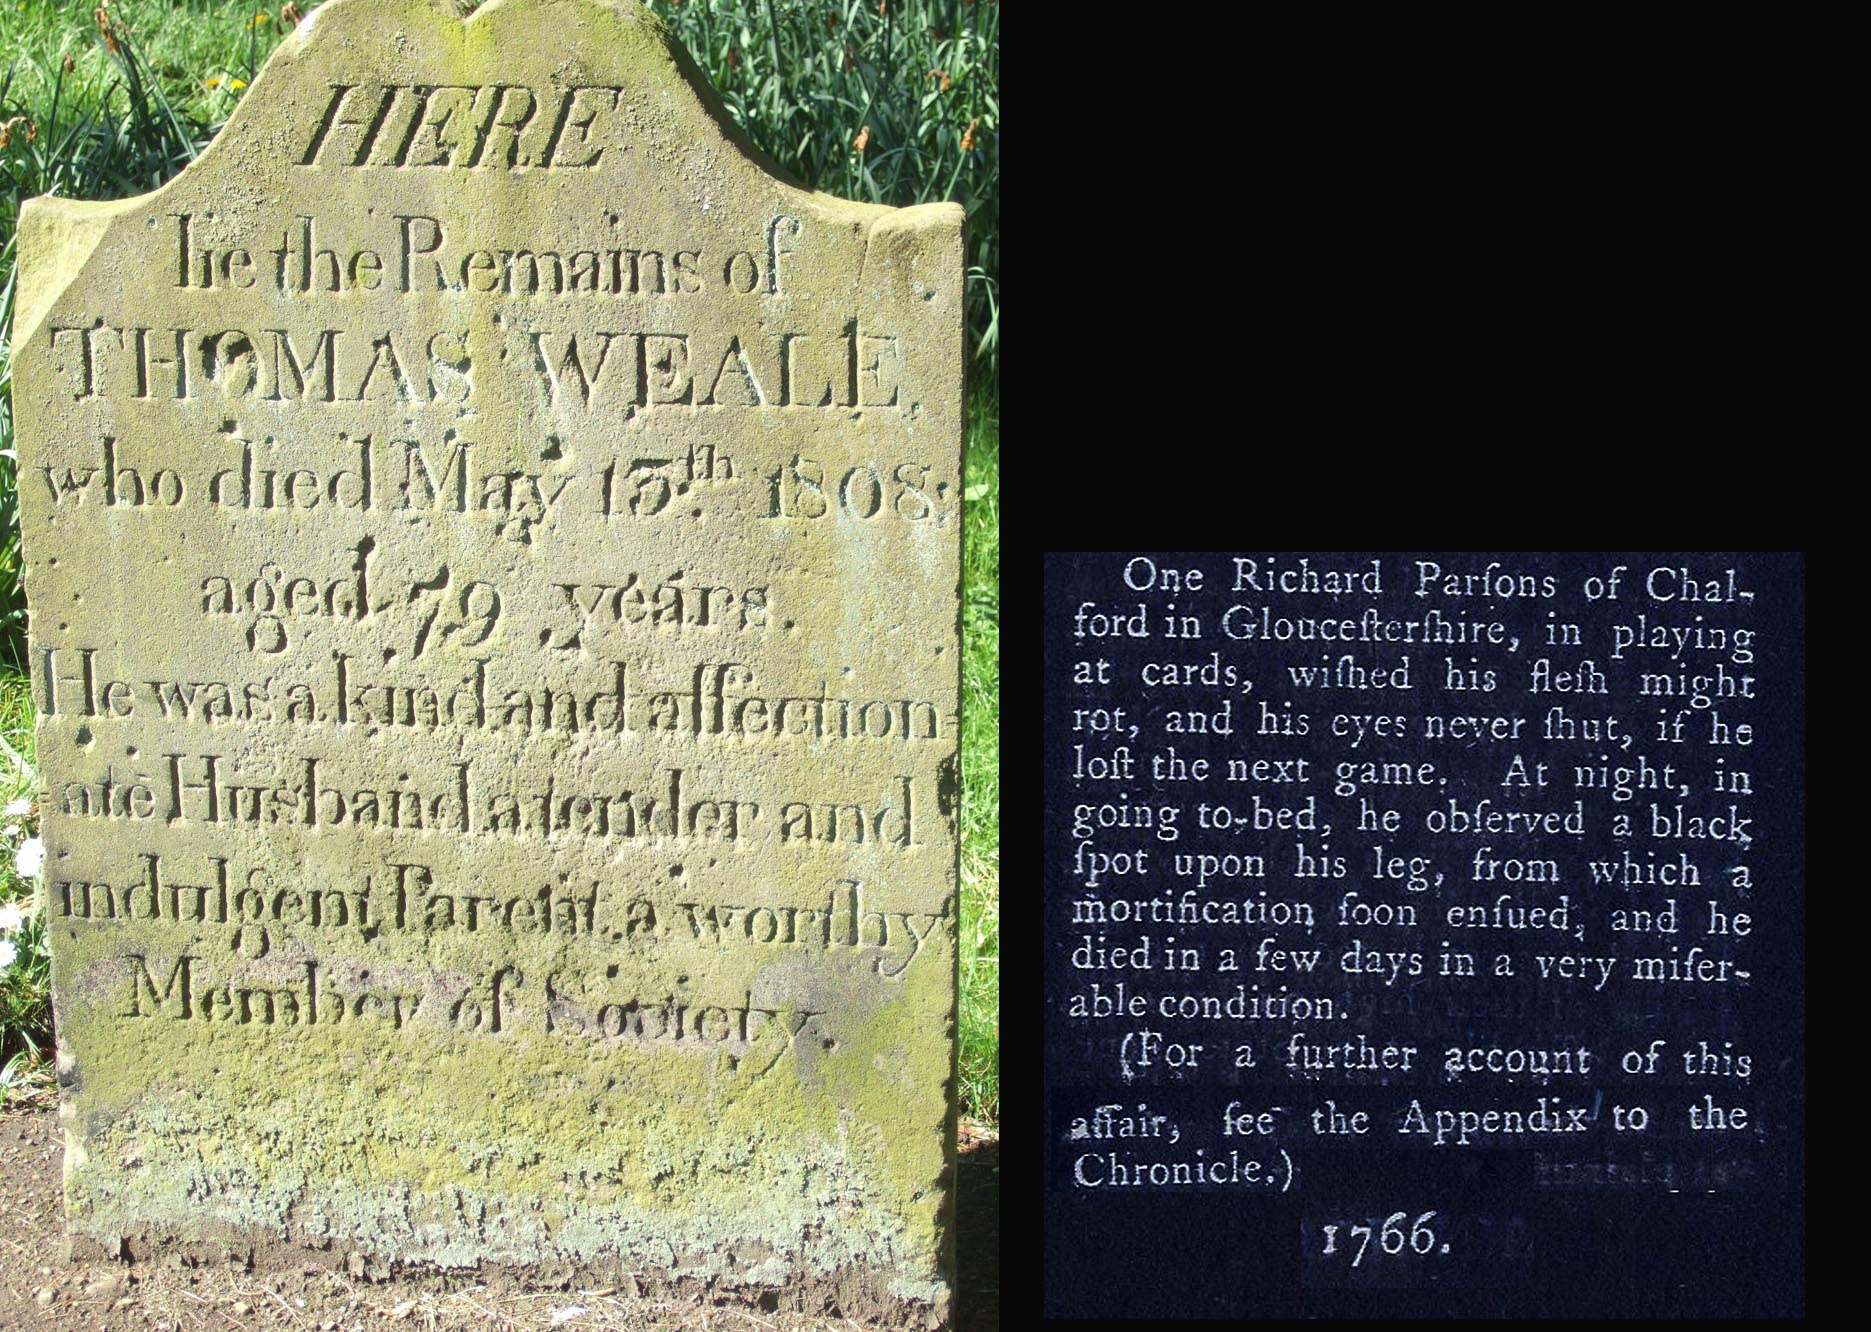 HERE
lie the Remains of
THOMAS WEALE,
who died May 13th 1808,
aged 79 years.
He was a kind and affection=
=ate Husband a tender and
indulgent Parent a worthy
Member of Society
One Richard Parſons of Chal-
ford in Glouceſterſhire, in playing
at cards, wiſhed his fleſh might
rot, and his eyes never ſhut, if he
loſt the next game. At night, in
going to-bed, he obſerved a black
ſpot upon his leg, from which a
mortification ſoon enſued, and he
died in a few days in a very miſer-
able condition.
(For a further account of this
affair, ſee the Appendix to the
Chronicle.)
1766.